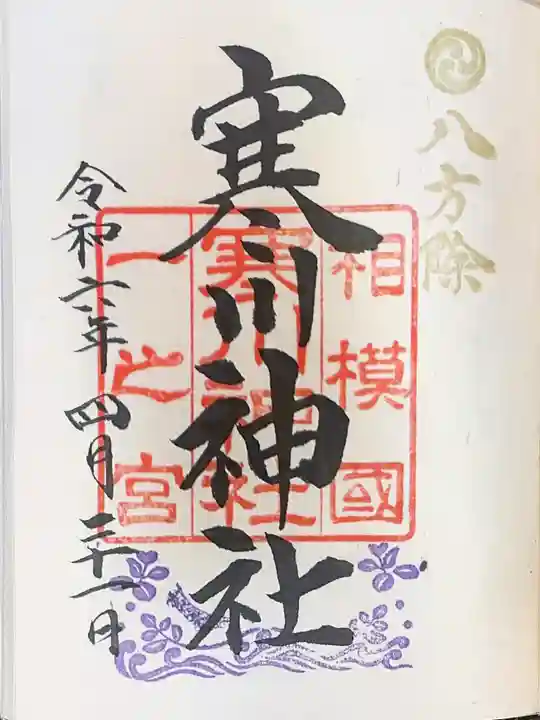 八方除
相模國
寒川神社
寒川神社
一之宮
令和六年四月二十一日